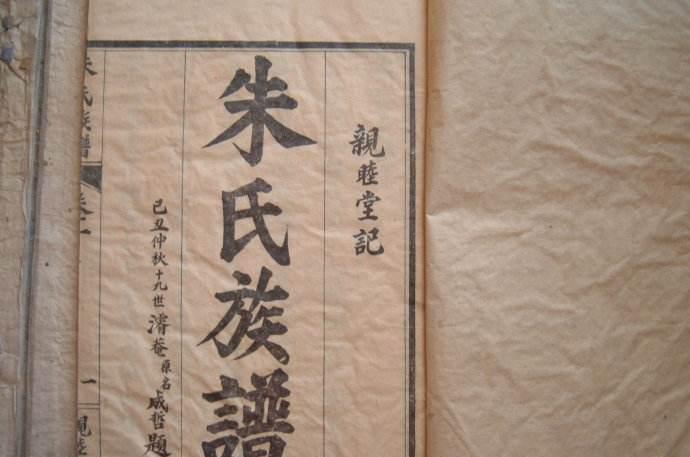 親睦堂記
朱氏族譜
己丑仲秋十九世濬菴原名成哲題
朱氏族譜
卷二
一
親睦